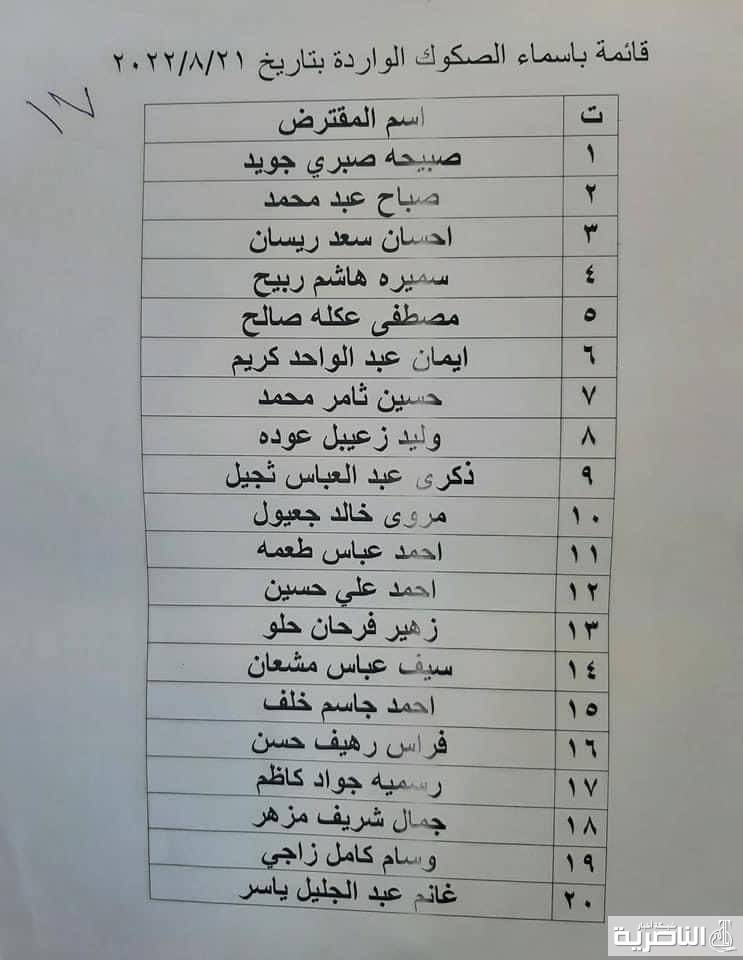 قائمة باسماء الصكوك الواردة بتاريخ ٢٠٢٢/٨/٢١
ت اسم المقترض
١ صبيحه صبري جويد
٢ صباح عبد محمد
٣ احسان سعد ريسان
٤ سميره هاشم ربيح
٥ مصطفى عكله صالح
٦ ايمان عبد الواحد كريم
٧ حسين ثامر محمد
٨ وليد زعيبل عوده
٩ ذكرى عبد العباس ثجيل
١٠ مروى خالد جعيول
١١ احمد عباس طعمه
١٢ احمد علي حسين
١٣ زهير فرحان حلو
١٤ سيف عباس مشعان
١٥ احمد جاسم خلف
١٦ فراس رهيف حسن
١٧ رسميه جواد كاظم
١٨ جمال شريف مزهر
١٩ وسام كامل زاجي
٢٠ غانم عبد الجليل ياسر
شبكة اخبار
الناصرية